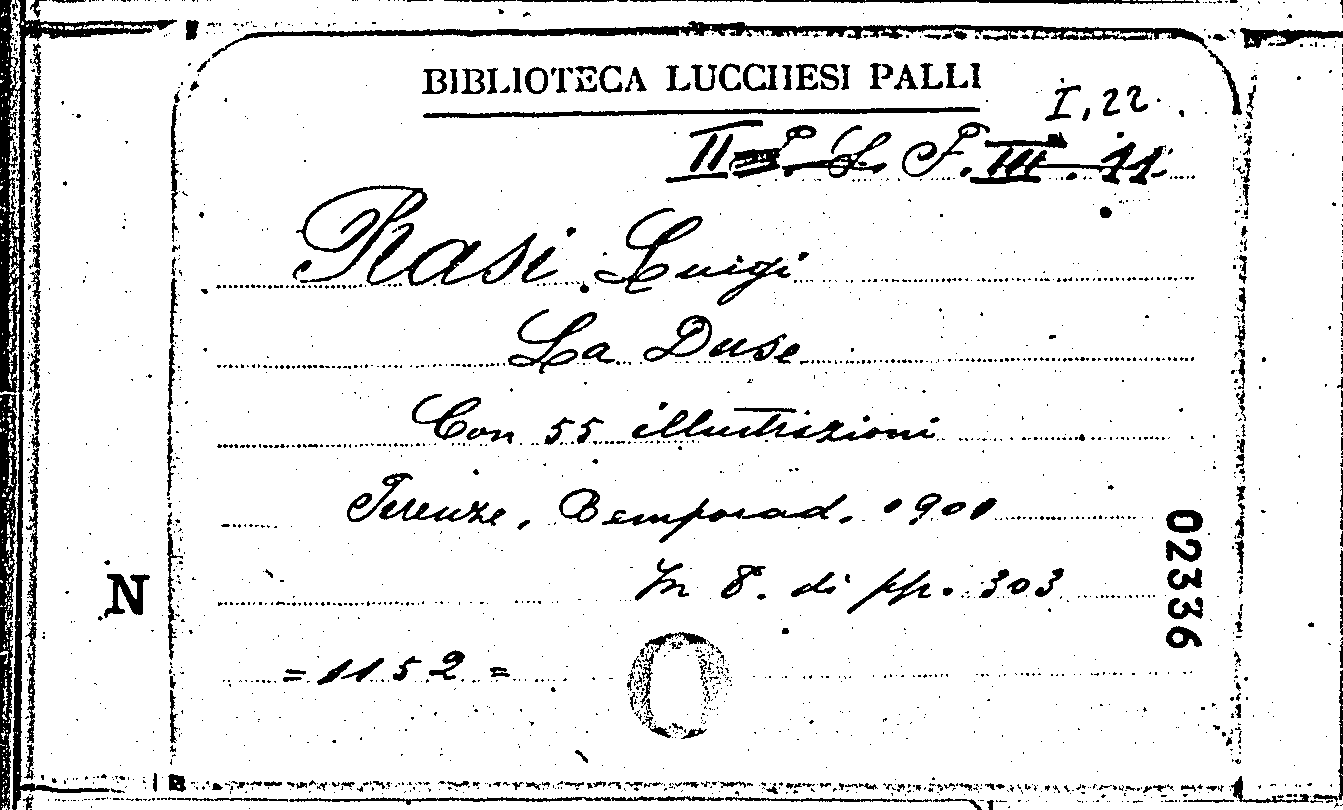 BIBLIOTECA LUCCHESI PALLI
I, 22.
II P. L. P. III. 11
Rasi Luigi
La Duse
Con 55 illustrazioni
Firenze, Bemporad, 1901
In 8. di pp. 303
= 1152 =
N
O
02336